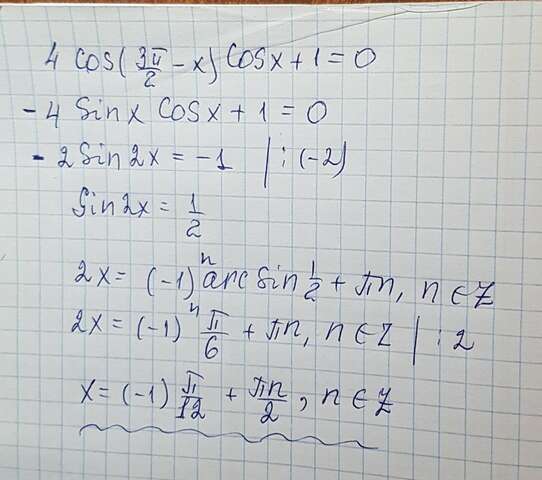 4 cos(3π/2 - x) cosx + 1 = 0
- 4 Sinx cosx + 1 = 0
- 2 Sin 2x = -1 | : (-2)
Sin 2x = 1/2
2x = (-1)ⁿ arcSin 1/2 + πn, n ∈ Z
2x = (-1)ⁿ π/6 + πn, n ∈ Z | : 2
x = (-1) π/12 + πn/2, n ∈ Z